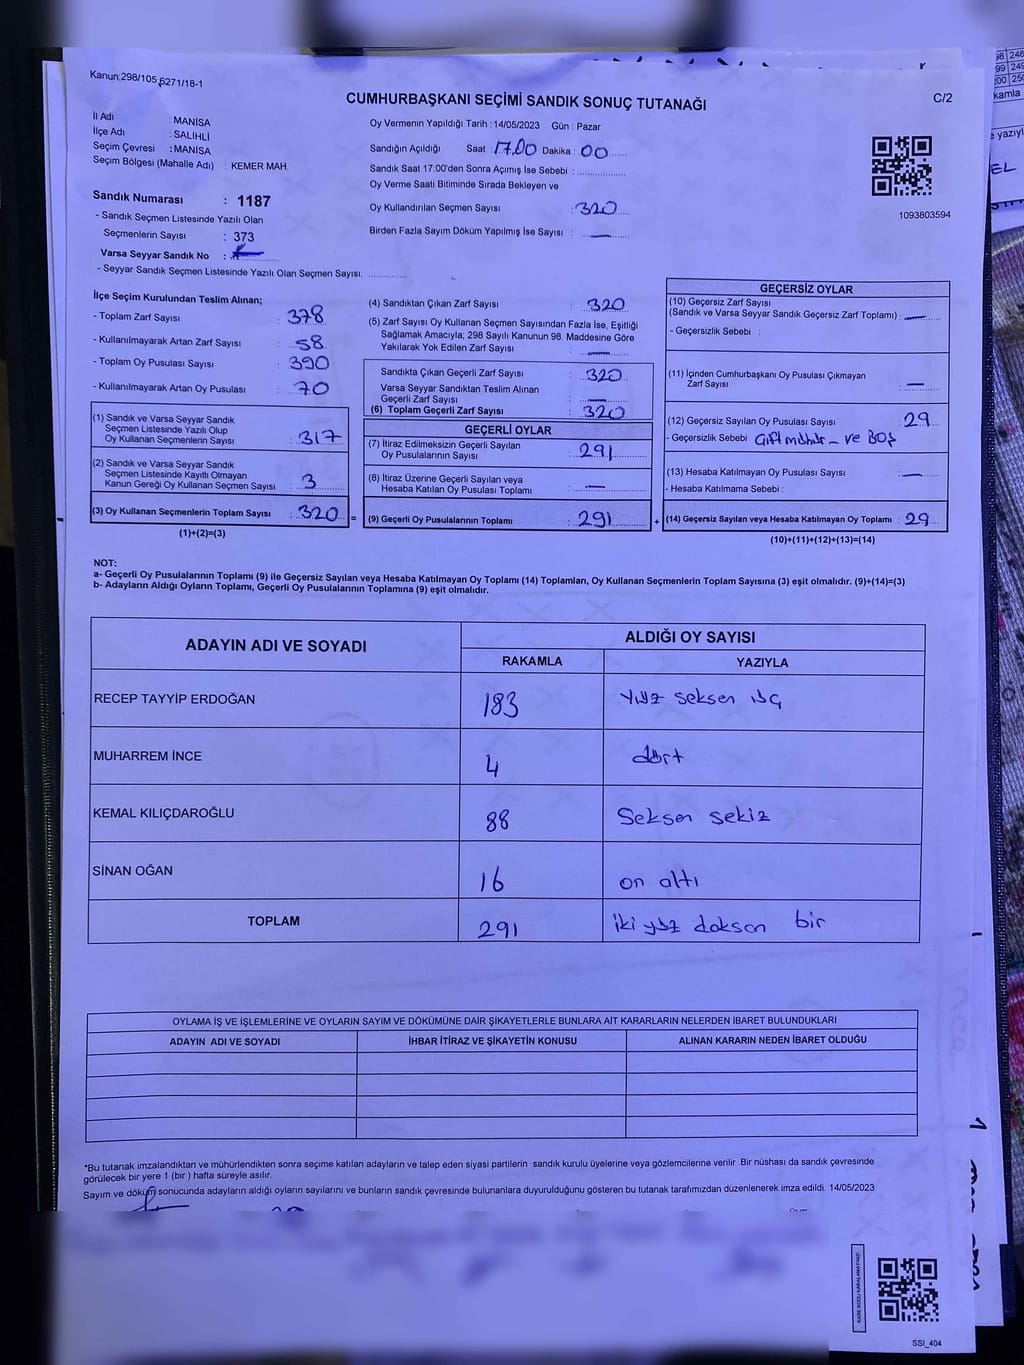 Kanun;298/105,6271/18-1
CUMHURBAŞKANI SEÇİMİ SANDIK SONUÇ TUTANAĞI
C/2
İl Adı : MANİSA
İlçe Adı : SALİHLİ
Seçim Çevresi : MANİSA
Seçim Bölgesi (Mahalle Adı) : KEMER MAH.
Oy Vermenin Yapıldığı Tarih :14/05/2023 Gün : Pazar
Sandığın Açıldığı Saat 17.00 Dakika : 00
Sandık Saat 17:00'den Sonra Açımış İse Sebebi :
Oy Verme Saati Bitiminde Sırada Bekleyen ve
Oy Kullandırılan Seçmen Sayısı : 320
Birden Fazla Sayım Döküm Yapılmış İse Sayısı : —
1093803594
Sandık Numarası : 1187
- Sandık Seçmen Listesinde Yazılı Olan
Seçmenlerin Sayısı : 373
Varsa Seyyar Sandık No :
- Seyyar Sandık Seçmen Listesinde Yazılı Olan Seçmen Sayısı:
İlçe Seçim Kurulundan Teslim Alınan;
- Toplam Zarf Sayısı : 378
- Kullanılmayarak Artan Zarf Sayısı : 58
- Toplam Oy Pusulası Sayısı : 390
- Kullanılmayarak Artan Oy Pusulası : 70
(1) Sandık ve Varsa Seyyar Sandık
Seçmen Listesinde Yazılı Olup
Oy Kullanan Seçmenlerin Sayısı : 317
(2) Sandık ve Varsa Seyyar Sandık
Seçmen Listesinde Kayıtlı Olmayan
Kanun Gereği Oy Kullanan Seçmen Sayısı : 3
(3) Oy Kullanan Seçmenlerin Toplam Sayısı : 320 =
(1)+(2)=(3)
(4) Sandıktan Çıkan Zarf Sayısı : 320
(5) Zarf Sayısı Oy Kullanan Seçmen Sayısından Fazla İse, Eşitliği
Sağlamak Amacıyla; 298 Sayılı Kanunun 98. Maddesine Göre
Yakılarak Yok Edilen Zarf Sayısı : —
Sandıkta Çıkan Geçerli Zarf Sayısı : 320
Varsa Seyyar Sandıktan Teslim Alınan
Geçerli Zarf Sayısı : —
(6) Toplam Geçerli Zarf Sayısı : 320
GEÇERLİ OYLAR
(7) İtiraz Edilmeksizin Geçerli Sayılan
Oy Pusulalarının Sayısı : 291
(8) İtiraz Üzerine Geçerli Sayılan veya
Hesaba Katılan Oy Pusulası Toplamı : —
(9) Geçerli Oy Pusulalarının Toplamı : 291 +
GEÇERSİZ OYLAR
(10) Geçersiz Zarf Sayısı
(Sandık ve Varsa Seyyar Sandık Geçersiz Zarf Toplamı) : —
- Geçersizlik Sebebi :
(11) İçinden Cumhurbaşkanı Oy Pusulası Çıkmayan
Zarf Sayısı : —
(12) Geçersiz Sayılan Oy Pusulası Sayısı : 29
- Geçersizlik Sebebi Çift mühür – ve BOŞ
(13) Hesaba Katılmayan Oy Pusulası Sayısı : —
- Hesaba Katılmama Sebebi :
(14) Geçersiz Sayılan veya Hesaba Katılmayan Oy Toplamı : 29
(10)+(11)+(12)+(13)=(14)
NOT:
a- Geçerli Oy Pusulalarının Toplamı (9) ile Geçersiz Sayılan veya Hesaba Katılmayan Oy Toplamı (14) Toplamları, Oy Kullanan Seçmenlerin Toplam Sayısına (3) eşit olmalıdır. (9)+(14)=(3)
b- Adayların Aldığı Oyların Toplamı, Geçerli Oy Pusulalarının Toplamına (9) eşit olmalıdır.
ADAYIN ADI VE SOYADI
ALDIĞI OY SAYISI
RAKAMLA YAZIYLA
RECEP TAYYİP ERDOĞAN 183 yüz seksen üç
MUHARREM İNCE 4 dört
KEMAL KILIÇDAROĞLU 88 Seksen sekiz
SİNAN OĞAN 16 on altı
TOPLAM 291 iki yüz doksan bir
OYLAMA İŞ VE İŞLEMLERİNE VE OYLARIN SAYIM VE DÖKÜMÜNE DAİR ŞİKAYETLERLE BUNLARA AİT KARARLARIN NELERDEN İBARET BULUNDUKLARI
ADAYIN ADI VE SOYADI İHBAR İTİRAZ VE ŞİKAYETİN KONUSU ALINAN KARARIN NEDEN İBARET OLDUĞU
*Bu tutanak imzalandıktan ve mühürlendikten sonra seçime katılan adayların ve talep eden siyasi partilerin sandık kurulu üyelerine veya gözlemcilerine verilir .Bir nüshası da sandık çevresinde
görülecek bir yere 1 (bir ) hafta süreyle asılır.
Sayım ve döküm sonucunda adayların aldığı oyların sayılarını ve bunların sandık çevresinde bulunanlara duyurulduğunu gösteren bu tutanak tarafımızdan düzenlenerek imza edildi. 14/05/2023
KARE KODU KARALAMAYINIZ!
SSI_404